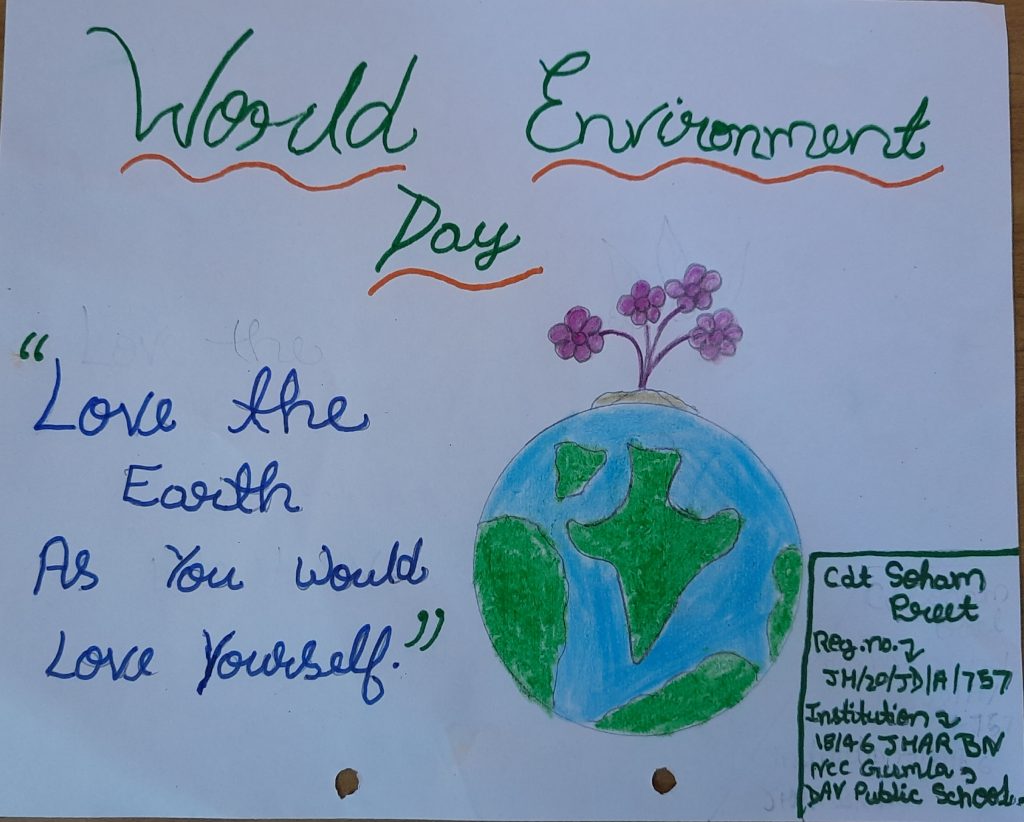 World Environment
Day
“Love the
Earth
As You Would
Love Yourself.”
Cdt Soham
Preet
Reg.no.
JH/20/JD/A/757
Institution
18/46 JHAR BN
NCC Gumla,
DAV Public School.